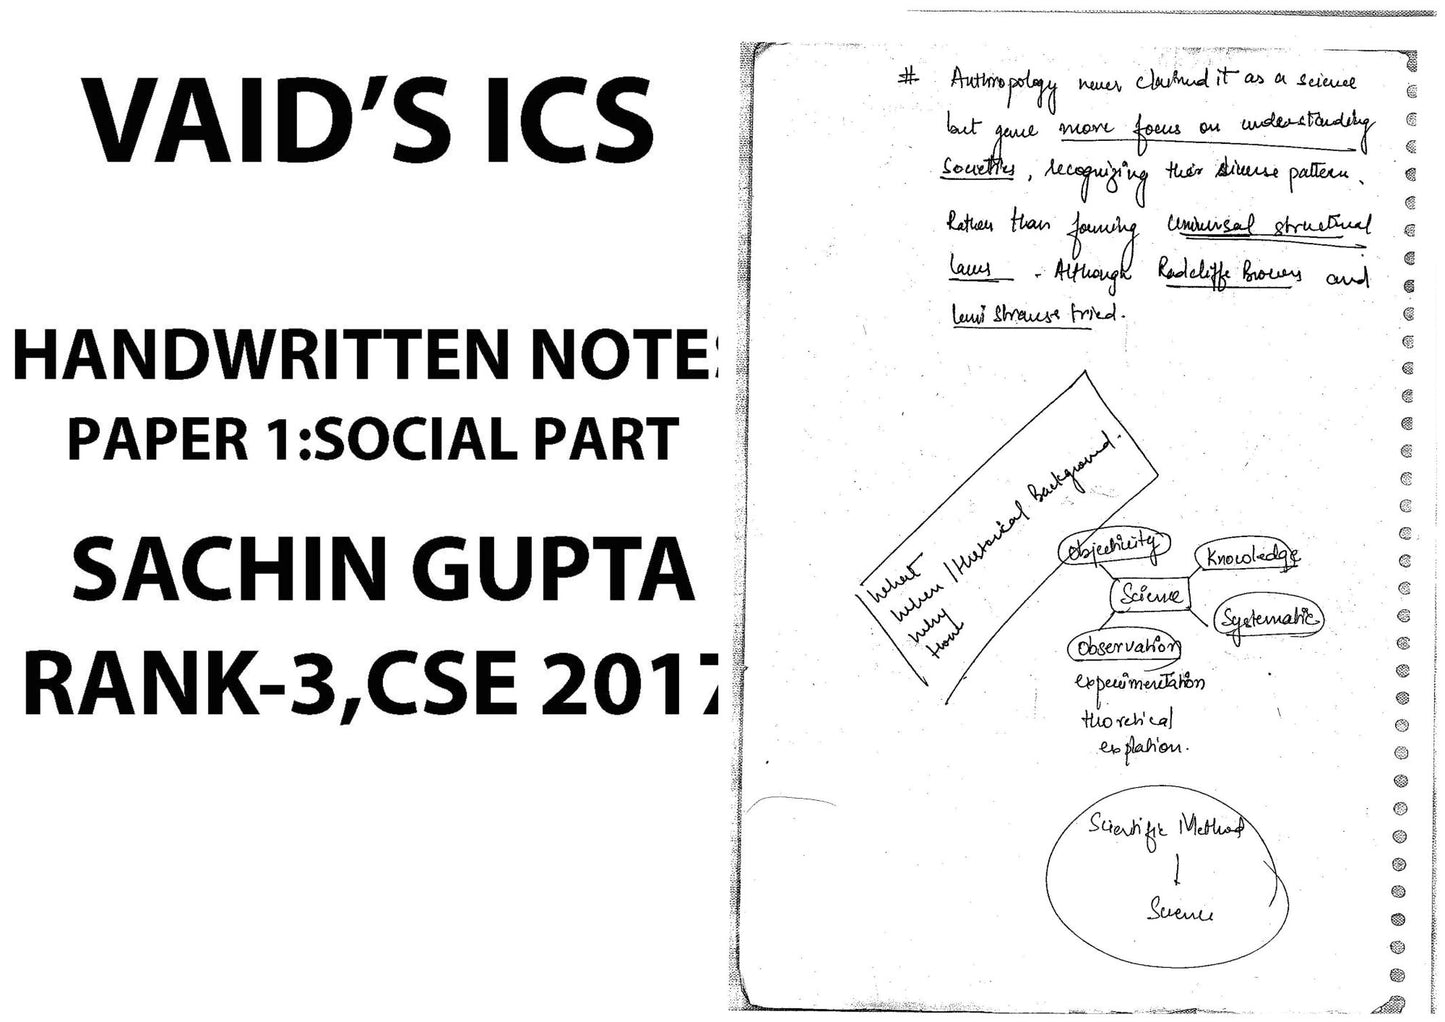 VAID'S ICS
HANDWRITTEN NOTES
PAPER 1:SOCIAL PART
SACHIN GUPTA
RANK-3,CSE 2017
# Anthropology never claimed it as a science
but gave more focus on understanding
societies, recognizing their diverse pattern.
Rather than forming universal structural
laws. Although Radcliffe Browns and
Levi Strauss tried.
What
When / Historical Background.
Why
How
Objectivity
Knowledge
Science
Systematic
Observation
experimentation
thoretical
explation.
Scientific Method
Science